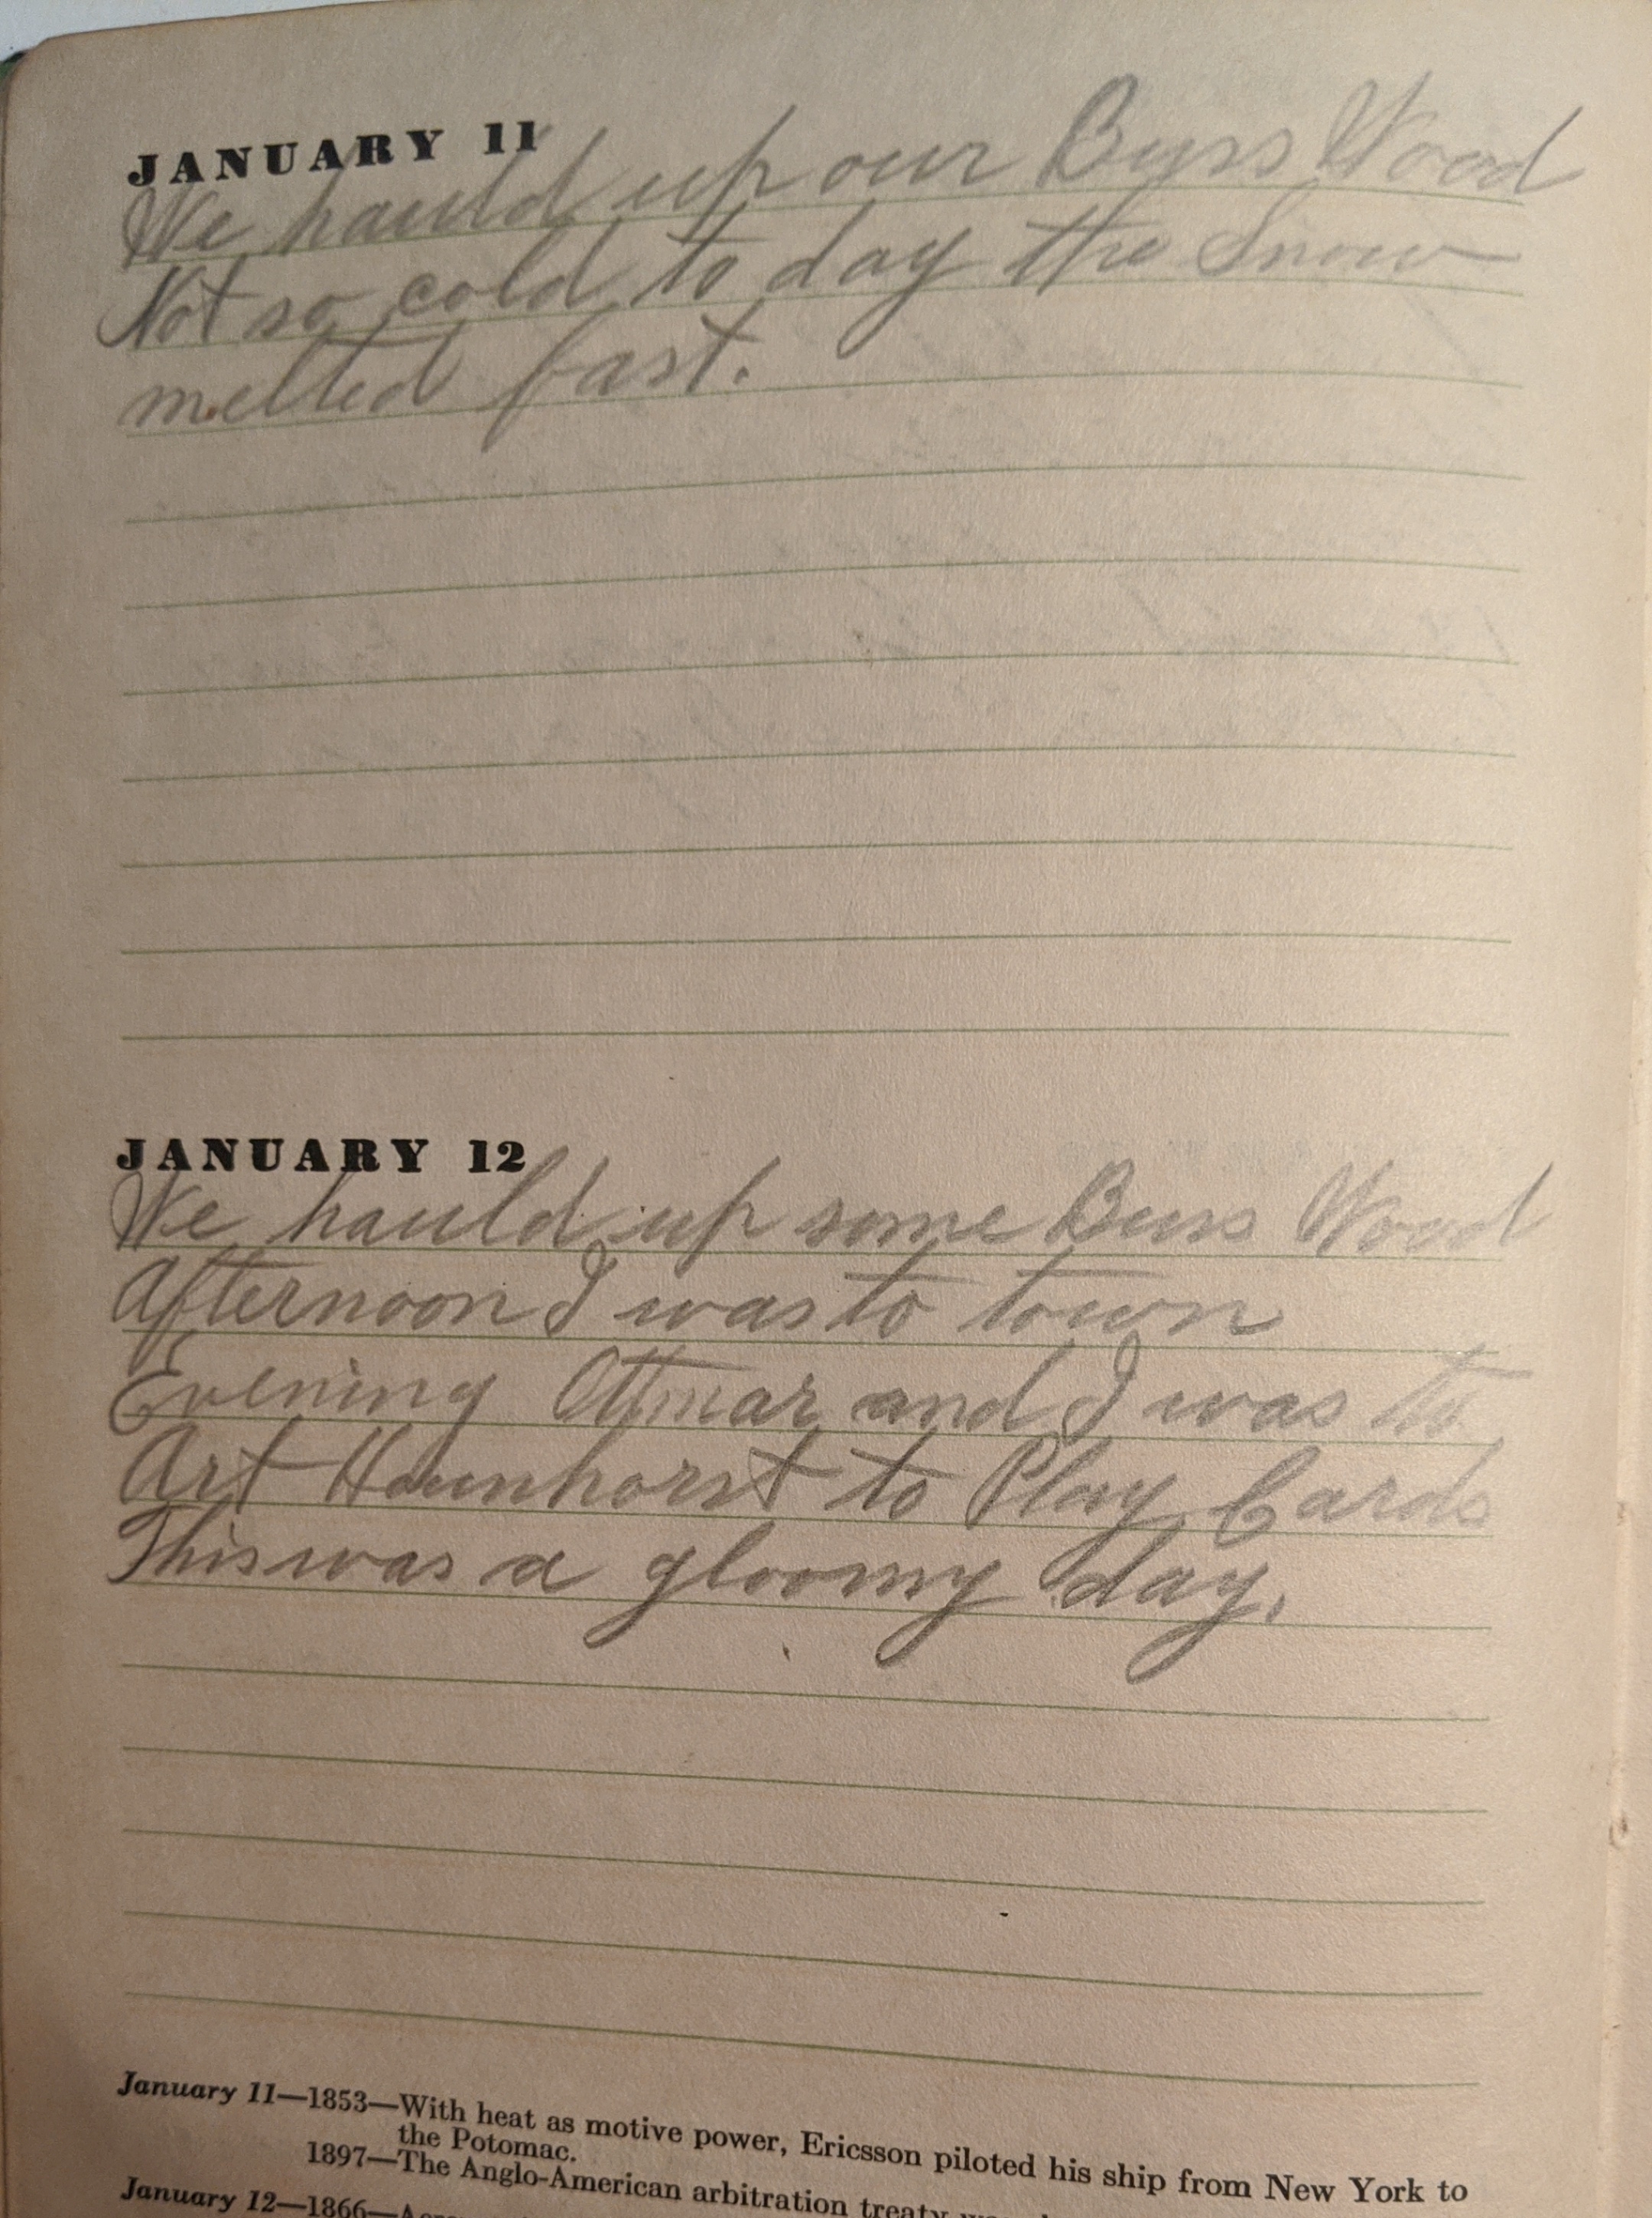 JANUARY 11
We hauld up our Buzz Wood
Not so cold to day the Snow
melted fast.
JANUARY 12
We hauld up some Buzz Wood
Afternoon I was to town
Evening Ottmar and I was to
Art to Play Cards
This was a gloomy day.
January 11—1853—With heat as motive power, Ericsson piloted his ship from New York to
the Potomac.
1897—The Anglo-American arbitration treaty
January 12—1866—